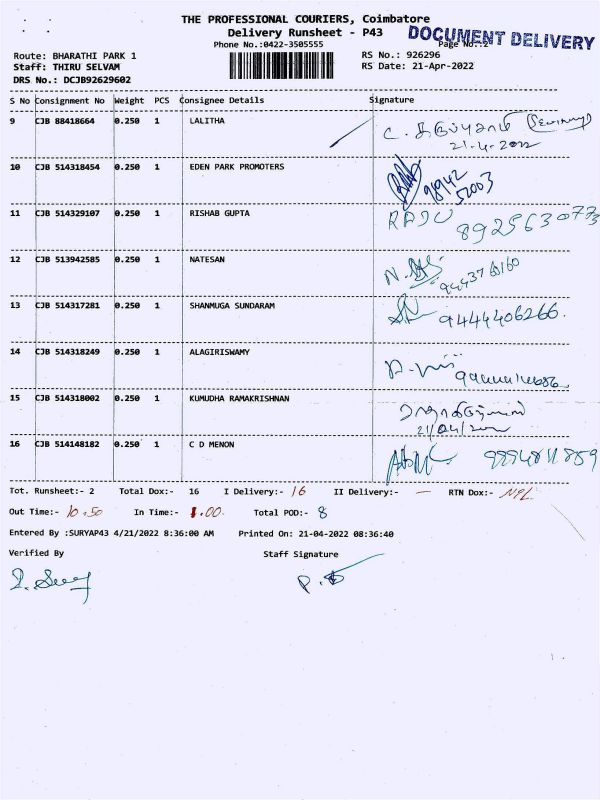 THE PROFESSIONAL COURIERS, Coimbatore
Delivery Runsheet - P43
DOCUMENT DELIVERY
Phone No.:0422-3505555
Page No.:2
Route: BHARATHI PARK 1
RS No.: 926296
Staff: THIRU SELVAM
RS Date: 21-Apr-2022
DRS No.: DCJB92629602
S No Consignment No Weight PCS Consignee Details Signature
9 CJB 88418664 0.250 1 LALITHA
21-4-2022
10 CJB 514318454 0.250 1 EDEN PARK PROMOTERS
98942
52003
11 CJB 514329107 0.250 1 RISHAB GUPTA RAJU 8925630773
12 CJB 513942585 0.250 1 NATESAN
13 CJB 514317281 0.250 1 SHANMUGA SUNDARAM 9444406266.
14 CJB 514318249 0.250 1 ALAGIRISWAMY
15 CJB 514318002 0.250 1 KUMUDHA RAMAKRISHNAN
16 CJB 514148182 0.250 1 C D MENON 9894811859
Tot. Runsheet:- 2 Total Dox:- 16 I Delivery:- 16 II Delivery:- — RTN Dox:- NIL
Out Time:- 10.50 In Time:- 1.00 Total POD:- 8
Entered By :SURYAP43 4/21/2022 8:36:00 AM Printed On: 21-04-2022 08:36:40
Verified By Staff Signature